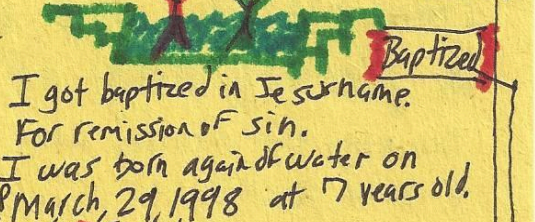 Baptized
I got baptized in Jesusname.
For remission of sin.
I was born again of water on
March, 29, 1998 at 7 years old.